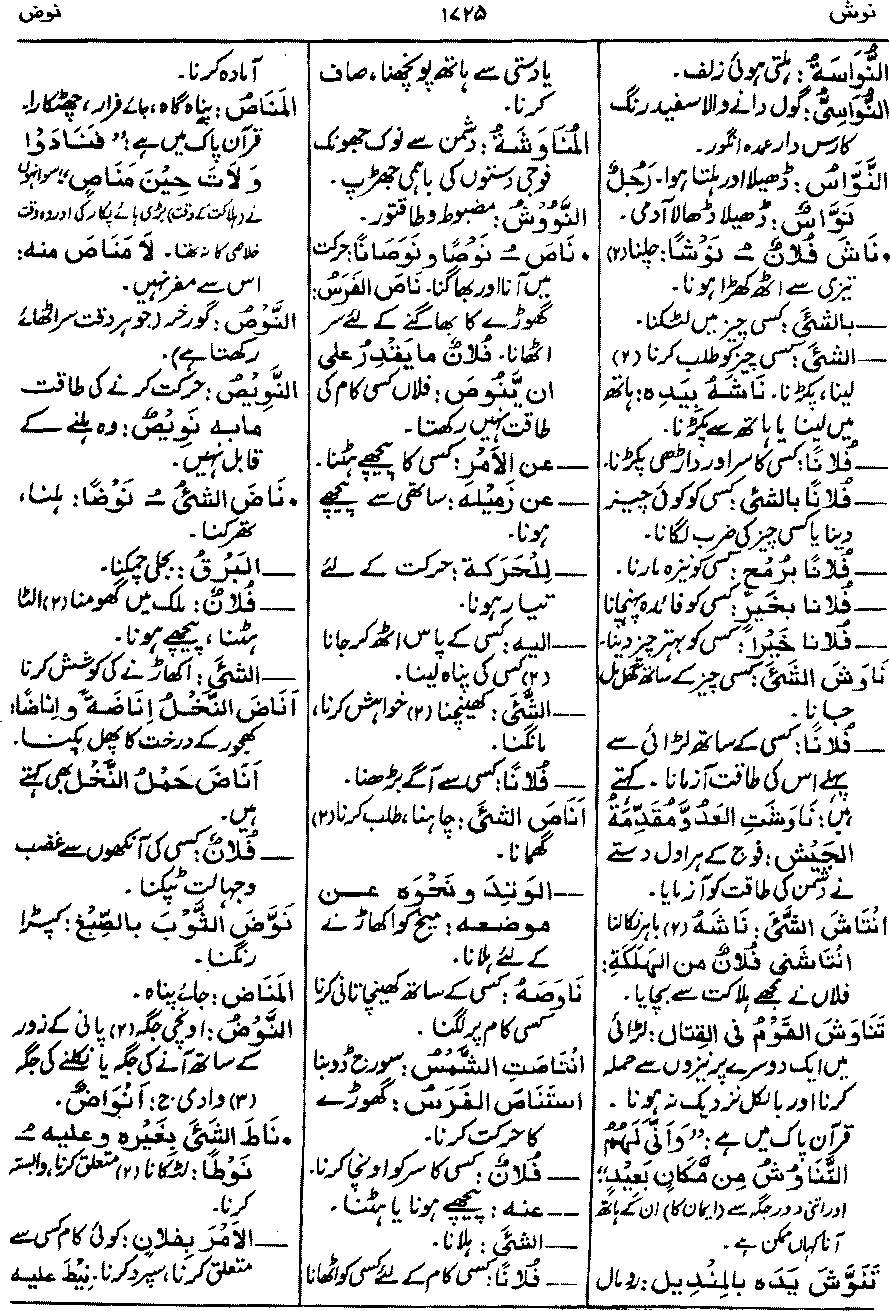 نوش
۱۷۲۵
نوض
النُّوَاسَةُ: ہلتی ہوئی زلف۔
النُّوَاسِیُّ: گول دانے والا سفید رنگ
کا رس دار عمدہ انگور۔
النَّوَّاسُ: ڈھیلا اور ہلتا ہوا۔ رَجُلٌ
نَوَّاسٌ: ڈھیلا ڈھالا آدمی۔
• نَاشَ فُلَانٌ ـُ نَوْشًا: چلنا (۲)
تیزی سے اٹھ کھڑا ہونا۔
ــ بالشئ: کسی چیز میں لٹکنا۔
ــ الشئَ: کسی چیز کو طلب کرنا (۲)
لینا، پکڑنا۔ نَاشَهُ بِيَدِه: ہاتھ
میں لینا یا ہاتھ سے پکڑنا۔
ــ فُلَانًا: کسی کا سر اور داڑھی پکڑنا۔
ــ فُلَانًا بالشئ: کسی کو کوئی چیز
دینا یا کسی چیز کی ضرب لگانا۔
ــ فُلَانًا بِرُمْحٍ: کسی کو نیزہ مارنا۔
ــ فُلَانا بخَيرٍ: کسی کو فائدہ پہنچانا
ــ فُلَانا خَيْرًا: کسی کو بہتر چیز دینا۔
نَاوَشَ الشَّئَ: کسی چیز کے ساتھ گھل مل
جانا۔
ــ فُلَانًا: کسی کے ساتھ لڑائی سے
پہلے اس کی طاقت آزمانا۔ کہتے
ہیں: نَاوَشَتِ العَدُوَّ مُقَدِّمَةُ
الجَيْشِ: فوج کے ہراول دستے
نے دشمن کی طاقت کو آزمایا۔
انْتَاشَ الشَّئَ: نَاشَهُ (۲) باہر نکالنا
انْتَاشَنِي فُلَانٌ من الهَلَكَةِ:
فلاں نے مجھے ہلاکت سے بچایا۔
تَنَاوَشَ القَوْمُ فی القِتال: لڑائی
میں ایک دوسرے پر نیزوں سے حملہ
کرنا اور بالکل نزدیک نہ ہونا۔
قرآن پاک میں ہے: "وَاَنّٰى لَهُمُ
التَّنَاوُشُ مِن مَّكَانٍ بَعِيْدٍ"
اور اتنی دور جگہ سے (ایمان کا) ان کے ہاتھ
آنا کہاں ممکن ہے۔
تَنَوَّشَ يَدَه بالمِنْدِيل: رومال
یا دستی سے ہاتھ پونچھنا، صاف
کرنا۔
المُنَاوَشَةُ: دشمن سے نوک جھونک
فوجی دستوں کی باہمی جھڑپ۔
النَّوُوْشُ: مضبوط و طاقتور۔
• نَاصَ ـُ نَوْصًا و نَوَصَانًا: حرکت
میں آنا اور بھاگنا۔ نَاصَ الفَرَسُ:
گھوڑے کا بھاگنے کے لئے سر
اٹھانا۔ فُلَانٌ ما يَقْدِرُ علی
ان يَّنُوصَ: فلاں کسی کام کی
طاقت نہیں رکھتا۔
ــ عن الاَمْرِ: کسی کا پیچھے ہٹنا۔
ــ عن زَمِيْلِه: ساتھی سے پیچھے
ہونا۔
ــ لِلْحَرَكة: حرکت کے لئے
تیار ہونا۔
ــ اليه: کسی کے پاس اٹھ کر جانا
(۲) کسی کی پناہ لینا۔
ــ الشَّئَ: کھینچنا (۲) خواہش کرنا،
مانگنا۔
ــ فُلَانًا: کسی سے آگے بڑھنا۔
اَنَاصَ الشئَ: چاہنا، طلب کرنا (۲)
گھمانا۔
ــ الوَتِدَ و نَحْوَه عن
موضعه: میخ کو اکھاڑنے
کے لئے ہلانا۔
نَاوَصَهُ: کسی کے ساتھ کھینچا تانی کرنا
کسی کام پر لگنا۔
انْتَاصَتِ الشَّمْسُ: سورج ڈوبنا
اسْتَنَاصَ الفَرَسُ: گھوڑے
کا حرکت کرنا۔
ــ فُلَانٌ: کسی کا سر کو اونچا کرنا۔
ــ عنه: پیچھے ہونا یا ہٹنا۔
ــ الشئَ: ہلانا۔
ــ فُلَانًا: کسی کام کے لئے کسی کو اٹھانا
آمادہ کرنا۔
المَنَاصُ: پناہ گاہ، جائے فرار، چھٹکارا۔
قرآن پاک میں ہے: "فَنَادَوْا
وَلَاتَ حِيْنَ مَنَاصٍ" سو انہوں
نے (ہلاکت کے وقت) بڑی ہائے پکار کی اور وہ وقت
خلاصی کا نہ تھا۔ لَا مَنَاصَ منه:
اس سے مفر نہیں۔
النَّوْصُ: گورخر (جو ہر وقت سر اٹھائے
رکھتا ہے)۔
النَّوِيْصُ: حرکت کرنے کی طاقت
مابه نَوِيْصٌ: وہ ہلنے کے
قابل نہیں۔
• نَاضَ الشئُ ـُ نَوْضًا: ہلنا،
تھرکنا۔
ــ البَرْقُ: بجلی چمکنا۔
ــ فُلَانٌ: ملک میں گھومنا (۲) الٹا
ہٹنا، پیچھے ہونا۔
ــ الشئَ: اکھاڑنے کی کوشش کرنا
اَنَاضَ النَّخْلُ اِنَاضَةً و اِنَاضًا:
کھجور کے درخت کا پھل پکنا۔
اَنَاضَ حَمْلُ النَّخْلِ بھی کہتے
ہیں۔
ــ فُلَانٌ: کسی کی آنکھوں سے غضب
و جہالت ٹپکنا۔
نَوَّضَ الثَّوْبَ بالصِّبْغِ: کپڑا
رنگنا۔
المَنَاضُ: جائے پناہ۔
النَّوْضُ: اونچی جگہ (۲) پانی کے زور
کے ساتھ آنے کی جگہ یا نکلنے کی جگہ
(۳) وادی ج: اَنْوَاضٌ۔
• نَاطَ الشَّئَ بِغَيْرِه و عليه ـُ
نَوْطًا: لٹکانا (۲) متعلق کرنا، وابستہ
کرنا۔
ــ الاَمْرَ بِفلَانٍ: کوئی کام کسی سے
متعلق کرنا، سپرد کرنا۔ نِيْطَ عليه